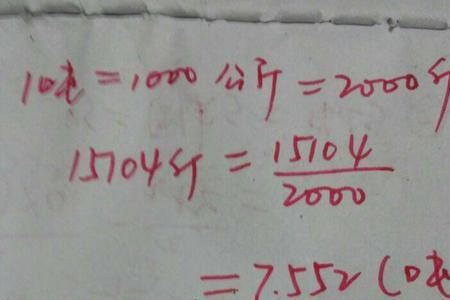 1吨=1000公斤=2000斤
15104斤=15104/2000
=7.552(吨